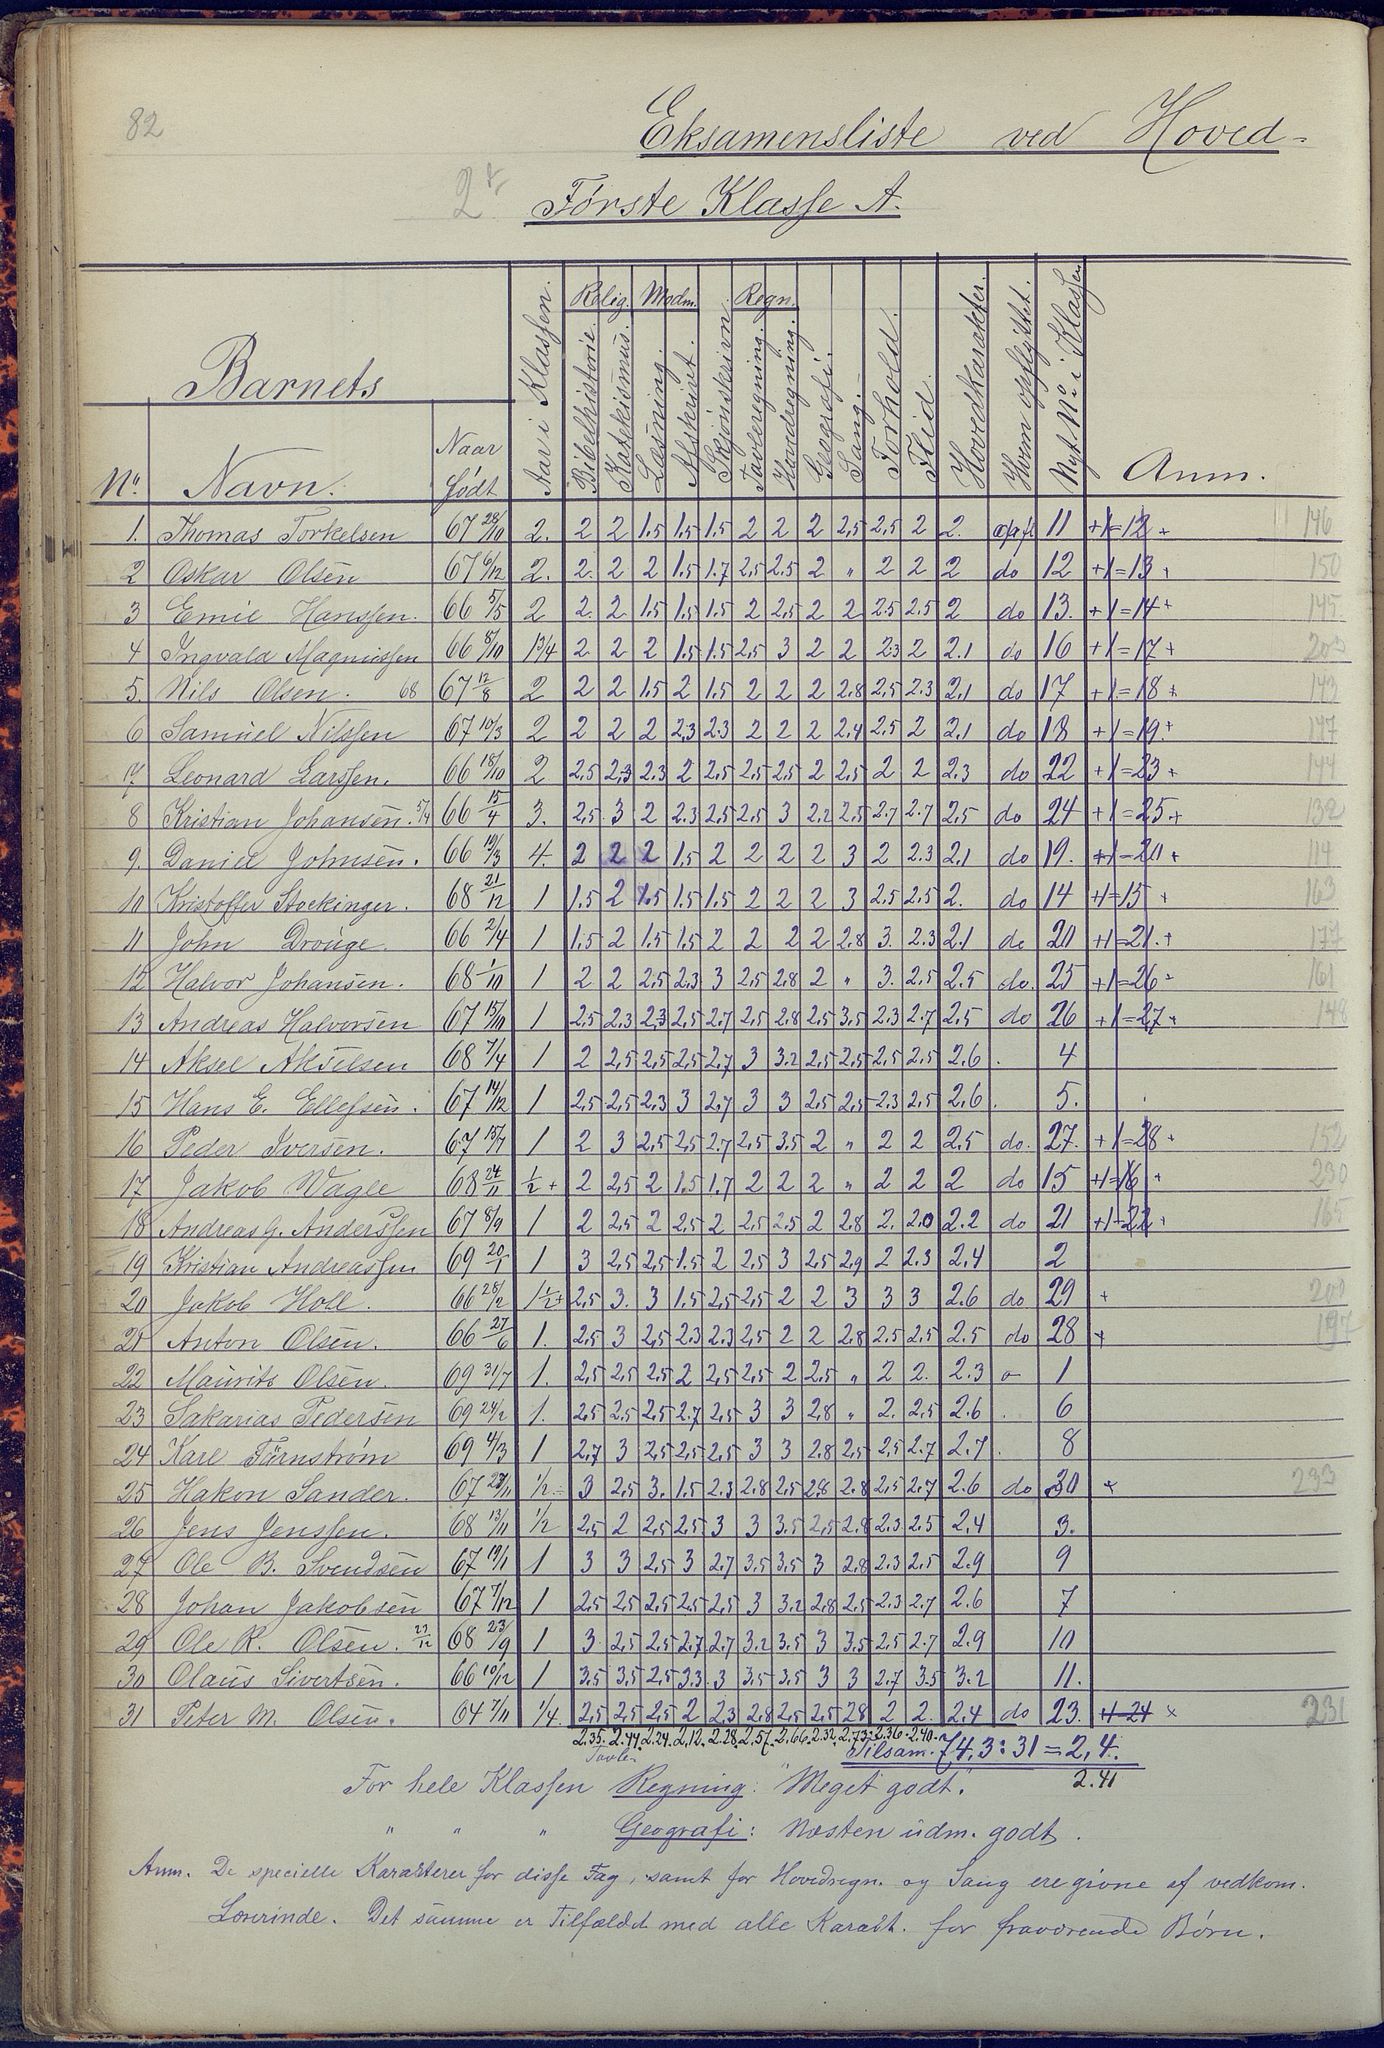 82
Eksamensliste ved Hoved-
2
Første Klasse A.
Barnets
No. Navn. Naar født Aar i Klassen. Relig. Bibelhistorie. Katekismus. Modm. Læsning. Afskrivt. Skjønskrivn. Regn. Tavleregning. Hovedregning. Geografi. Sang. Forhold. Flid. Hovedkarakter. Hvem opflyttet. Nyt No i Klassen Anm.
1. Thomas Torkelsen 67 28/10 2. 2 2 1.5 1.5 1.5 2 2 2 2,5 2,5 2 2. opfl 11 +1=12 + 146
2 Oskar Olsen 67 6/12 2. 2. 2 2 1.5 1.7 2,5 2.5 2 " 2 2 2 do 12 +1=13 + 150
3 Emil Hanssen. 66 5/5 2 2. 2 1.5 1.5 1.5 2 2,5 2 2 2.5 2.5 2 do 13. +1=14 + 145
4 Ingvald Magnussen 66 8/10 1 3/4 2 2 2 1.5 1.5 2,5 3 2 2 2.3 2 2.1 do 16 +1=17 + 203
5. Nils Olsen. 68 67 12/8 2 2 2 1.5 2 1.5 2 2 2 2.8 2,5 2.3 2,1 do 17 +1=18 + 143
6 Samuel Nilssen 67 10/3 2 2 2 2 2,3 2.3 2 2 2 2.4 2,5 2 2,1 do 18 +1=19. + 147
7 Leonard Larssen. 66 18/10 2 2,5 2,3 2.3 2 2,5 2,5 2,5 2 2,5 2 2 2,3 do 22 +1=23 + 144
8 Kristian Johansen. 5/4 66 15/4 3. 2,5 3 2 2.3 2,5 2,5 3 2.2 2,5 2.7 2.7 2,5 do 24 +1=25 + 132
9. Daniel Johnsen. 66 19/3 4. 2 2 2 1.5 2 2 2 2 3 2 2.3 2.1 do 19. +1=20 + 114
10 Kristoffer Stockinger. 68 21/12 1 1.5 2 1.5 1.5 1.5 2 2 2 3 2,5 2,5 2. do 14 +1=15 + 163
11 John Drouge. 66 2/4 1 1.5 2 1.5 1.5 2 2 2 2 2.8 3. 2.3 2.1 do 20 +1=21. + 177
12 Halvor Johansen. 68 1/10 1 2 2 2,5 2,3 3 2,5 2,8 2 " 3. 2,5 2.5 do. 25 +1=26 161
13 Andreas Halvorsen 67 15/10 1 2,5 2,3 2,3 2,5 2,7 2,5 2.8 2,5 3,5 2.3 2.7 2,5 do 26 +1=27 + 148
14 Aksel Akselsen 68 7/4 1 2 2,5 2,5 2,5 2,7 3 3.2 2,5 2,5 2,5 2.5 2.6 4
15 Hans E. Ellefsen. 67 14/12 1 2,5 2,5 2.3 3 2.7 3 3 2,5 2,5 2.3 2,5 2,6 5.
16 Peder Iversen. 67 15/7 1 2 3 2,5 2,5 2.7 2,5 3,5 2 " 2 2 2,5 do. 27. +1=28 + 152
17 Jakob Wagle 68 24/11 1/2 + 2 2,5 2 1.5 1.7 2 2 2 " 2 2 2 do 15 +1=16 + 230
18 Andreas G. Anderssen 67 8/9 1 2 2,5 2 2,5 2 2,5 2.5 2 2.8 2. 2.0 2.2 do 21 +1=22 + 165
19 Kristian Andreassen 69 20/1 1 3 2,5 2,5 1.5 2 2,5 3 2,5 2,9 2 2.3 2.4 2
20 Jakob Holl. 66 28/2 1 1/2 + 2,5 3. 3 1.5 2,5 2,5 2 2 3 3 3 2.6 do 29 + 200
21 Anton Olsen. 66 27/6 1. 2,5 3 2,5 2.3 2.3 2,5 2 2 2.8 2.5 2,5 2.5 do 28 + 197
22 Maurits Olsen. 69 31/7 1. 2,5 2,5 2,5 2 2,5 2,5 2 2,5 " 2 2. 2.3 1
23 Sakarias Pedersen 69 24/2 1. 2,5 2,5 2,5 2,7 2,5 3 3 2,8 " 2. 2,5 2.6 6
24 Karl Färnstrøm 69 4/3 1 2,7 3 2,5 2,5 2,5 3 3 2.8 2,5 2,5 2.7 2.7 8
25 Hakon Sander. 67 23/11 1/2 3 2,5 3. 1.5 2.3 2.8 2,5 2,8 2.8 2,5 2,7 2.6 do 30 + 233
26 Jens Jenssen. 68 13/11 1/2 2,5 2 2,5 2,5 3 3 3,5 2,5 2.8 2.3 2.5 2,4 3.
27 Ole B. Svendsen 67 19/1 1 3 3 2,5 3 2,7 3,5 3,5 3 2,8 2.3 2,5 2.9 9
28 Johan Jakobsen 67 7/12 1 2,5 2,5 2,5 2,5 2,5 3 3.2 2.8 2,5 2.3 2.7 2.6 7
29 Ole K. Olsen. 27/12 68 23/9 1 3 2,5 2,5 2,7 2,7 3.2 3,5 3 3,5 2,5 2.7 2.9 10
30 Olaus Sivertsen. 66 10/12 1 3,5 3,5 2,5 3.3 3 3,5 3,5 3 3 2.7 3.5 3.2 11.
31 Peter M. Olsen. 64 7/11 1/4. 2,5 2,5 2,5 2 2,3 2,8 2,5 2,5 2.8 2 2. 2,4 do 23. +1 24 × 231
2.35. 2.44. 2.24. 2,12. 2.28. 2,57. 2.66. 2.32. 2.73. 2.36. 2.40.
Tilsam. 74,3 : 31 = 2,4.
2.41
Tavle-
For hele Klassen Regning: "Meget godt".
" " " Geografi: Næsten udm. godt.
Anm. De specielle Karakterer for disse Fag, samt for Hovedregn. og Sang ere givne af vedkom.
Lærerinde. Det samme er Tilfældet med alle Karakt. for fraværende Børn.